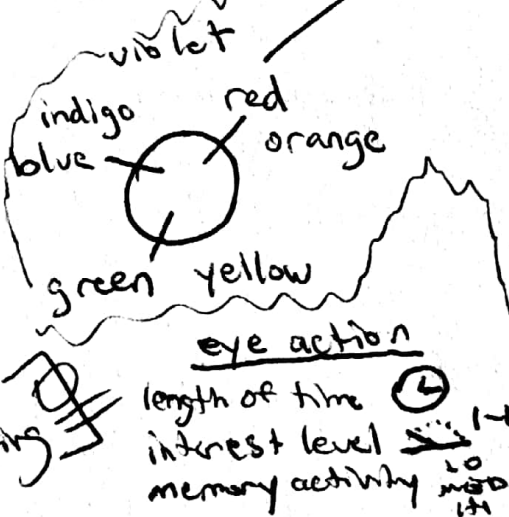 violet
indigo
red
blue
orange
green yellow
eye action
length of time
interest level
memory activity